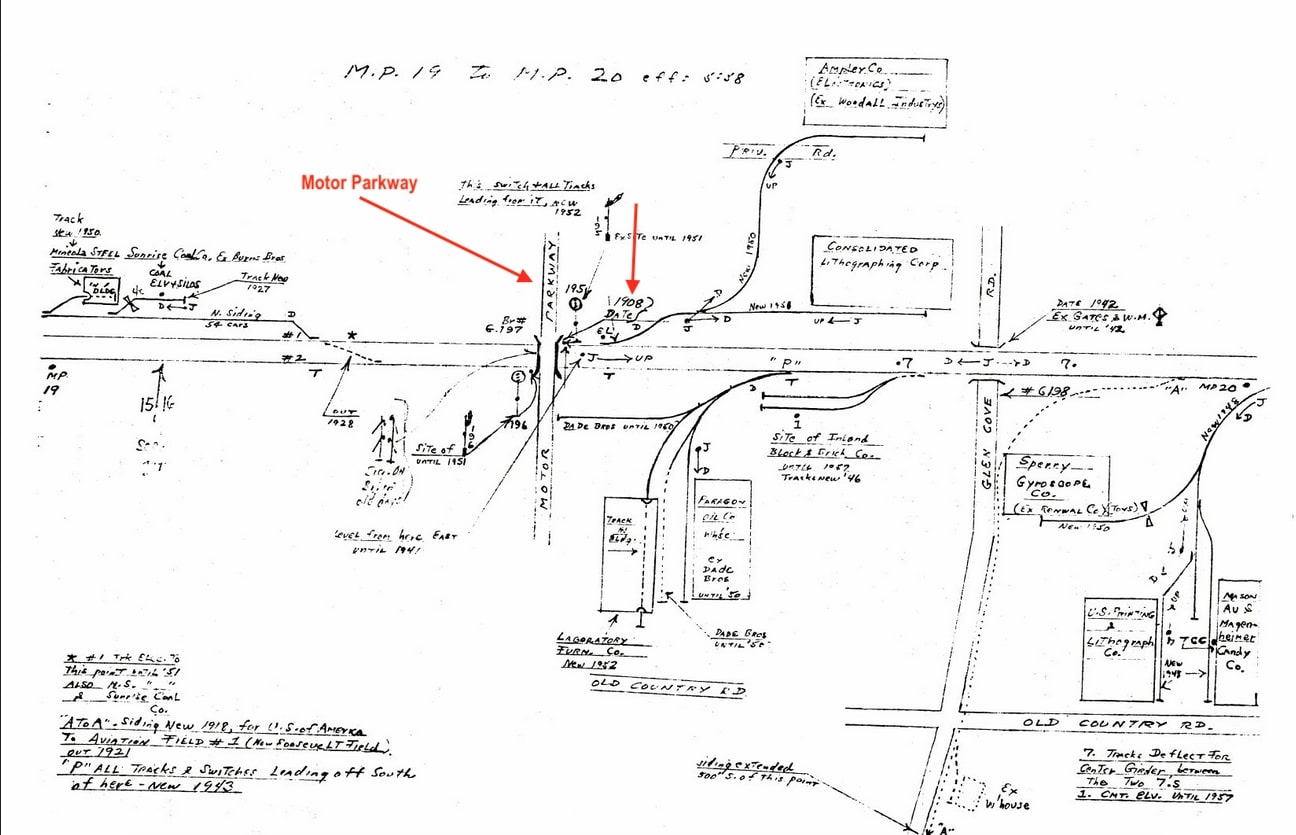 M.P. 19 To M.P. 20 eff: 5:58
Ampley Co.
(Electronics)
(Ex Woodall Industrys)
Priv. Rd.
J
UP
Motor Parkway
This switch & ALL Tracks
Leading from it, NEW
1952
Ex Site UNTIL 1951
New 1950
CONSOLIDATED
Lithographing Corp.
Track
New 1950
Mineola STEEL
Fabricators
BLDG
Sunrise Coal Co. Ex Burns Bros.
COAL
ELV & SILOS
Track New
1927
D J
N. Siding
54 CARS
D
#1
*
#2
T
MP.
19
15 16
OUT
1928
Br#
6.197
PARKWAY
MOTOR
195
1908
DATE
EL
D
J
D
D
New 1958
UP J
J UP
T
S
196
Site of
UNTIL 1951
196
Level from here EAST
UNTIL 1941
DADE BROS UNTIL 1960
"P"
D
T
.7
D J D
7.
RD.
GLEN COVE
DATE 1942
Ex GATES & W.M.
UNTIL '42
#6198
"A"
MP 20
J
D
New 1948
1
Site of Inland
Block & Brick Co.
UNTIL 1957
Tracks New '46
J
D
TRACK
IN
BLDG.
PARAGON
OIL Co
Whse
ex
DADE
BROS
UNTIL '50
DADE BROS
UNTIL '50
LABORATORY
FURN. Co.
New 1952
OLD COUNTRY RD
Sperry
GYROSCOPE
Co.
(Ex RENWAL Co.) (Toys)
New 1950
U.S. PRINTING
&
Lithograph
Co.
UP
TCC
NEW
1948
MASON
AU &
Magen-
heimer
Candy
Co.
OLD COUNTRY RD.
* #1 Trk Elec. To
This point UNTIL '51
ALSO N.S. " "
& Sunrise Coal
Co.
"A To A" - Siding New 1918, for U.S. of AMERICA
To AVIATION FIELD #1 (Now Roosevelt Field)
OUT 1921
"P" ALL TRACKS & SWITCHES Leading off South
of here - New 1943
siding extended
500' S. of This point
Ex
W'house
"A"
7. Tracks Deflect For
Center Girder between
The Two 7.S
1. CMT. ELV. UNTIL 1957